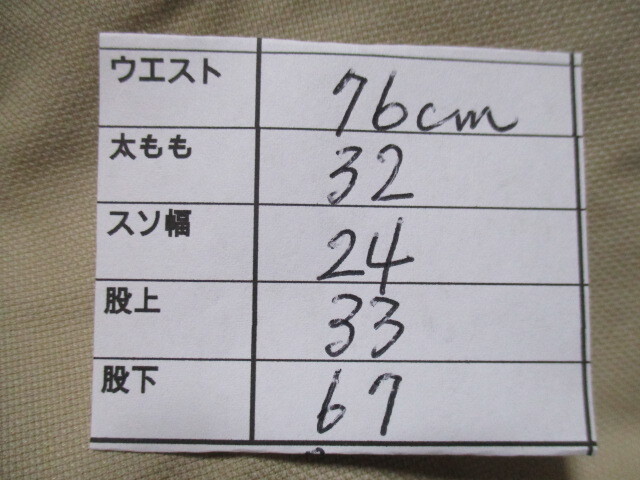 ウエスト 76cm
太もも 32
スソ幅 24
股上 33
股下 67